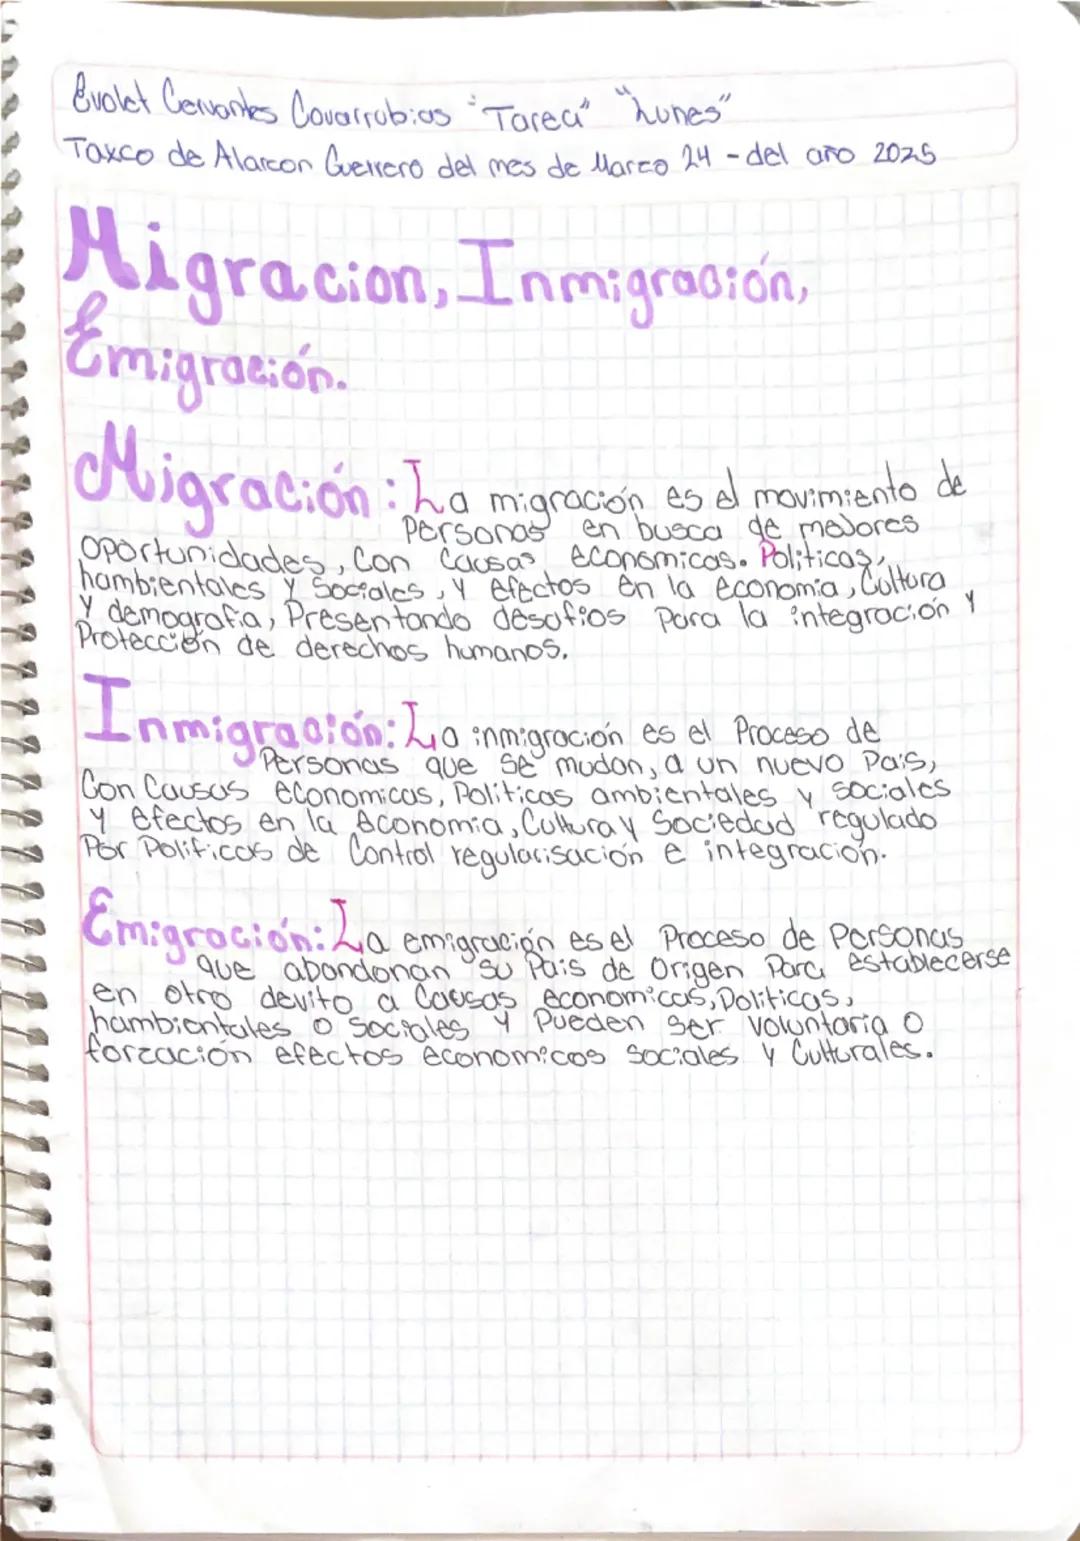 Evolet Cervantes Covarrubias "Tarea" "Lunes"
Taxco de Alarcon Guerrero del mes de Marzo 24 - del año 2025
Migracion, Inmigración,
Emigración.
Migración: La migración es el movimiento de
Personas en busca de mejores
oportunidades, Con Causas economicas. Politicas,
hambientales y Sociales, y efectos en la economia, Cultura
y demografia, Presentando desafios para la integración y
Protección de derechos humanos.
Inmigración: La inmigración es el Proceso de
Personas que se mudan, a un nuevo Pais,
Con Causas economicas, Politicas ambientales y sociales
y efectos en la economia, Cultura y Sociedad regulado
Por Politicas de Control regularisación e integración.
Emigración: La emigración es el Proceso de Personas
que abandonan su Pais de Origen Para establecerse
en otro devito a Causas economicas, Politicas,
hambientales o Sociales y Pueden ser voluntaria o
forzación efectos economicos sociales y Culturales.